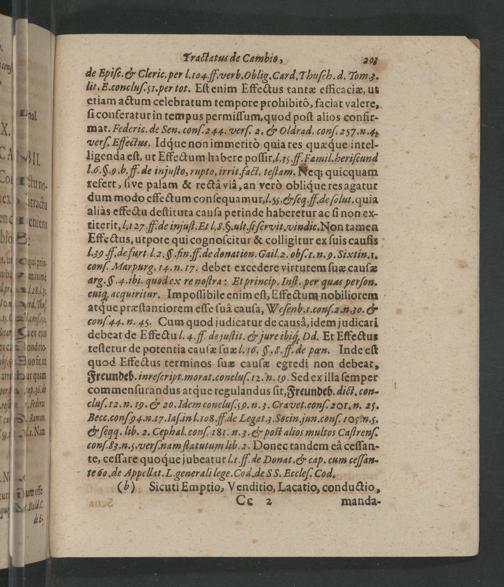 Tractatus de Cambio, 203
de Episc. & Cleric. per l. 104. ff. verb. Oblig. Card. Thusch. d. Tom. 3.
lit. E. conclus. 51. per tot. Est enim Effectus tantæ efficaciæ, ut
etiam actum celebratum tempore prohibitô, faciat valere,
si conferatur in tempus permissum, quod post alios confir-
mat. Federic. de Sen. cons. 244. vers. 2. & Oldrad. cons. 257. n. 4.
vers. Effectus. Idque non immeritò quia res quæque intel-
ligenda est, ut Effectum habere possit, l. 15. ff. Famil. heriscund
l. 6. §. 9. b. ff. de injusto, rupto, irrit. fact. testam. Neq; quicquam
refert, sive palam & rectâ viâ, an verò oblique res agatur
dum modo effectum consequamur, l. 55. & seq. ff. de solut. quia
aliàs effectu destituta causa perinde haberetur ac si non ex-
titerit, l. 127. ff. de injust. Et l. 8. §. ult. si servit. vindic. Non tamen
Effectus, utpote qui cognoscitur & colligitur ex suis causis
l. 39. ff. de furt. l. 2. §. fin. ff. de donation. Gail. 2. obs. 1. n. 9. Sixtin. 1.
cons. Marpurg. 14. n. 17. debet excedere virtutem suæ causæ
arg. §. 4. ibi. quod ex re nostra: Et princip. Inst. per quas person.
cuiq, acquiritur. Impossibile enim est, Effectum nobiliorem
atque præstantiorem esse suâ causa, Wesenb. 1. cons. 2. n. 30. &
cons. 44. n. 45. Cum quod judicatur de causâ, idem judicari
debeat de Effectu l. 4. ff. de justit. & jure ibiq, Dd. Et Effectus
testetur de potentia causæ suæ l. 16. §. 8. ff. de pœn. Inde est
quod Effectus terminos suæ causæ egredi non debeat,
Freundeb. in rescript. morat. conclus. 12. n. 19. Sed ex illa semper
commensurandus atque regulandus sit, Freundeb. dict. con-
clus. 12. n. 19. & 20. Idem conclus. 59. n. 3. Cravet. cons. 201. n. 25.
Becc. cons. 94. n. 17. Ias. in l. 108. ff. de Legat. 3. Socin. jun. cons. 105. n. 5.
& seqq. lib. 2. Cephal. cons. 281. n. 3. & post alios multos Castrens.
cons. 83. n. 5. vers. nam statutum lib. 2. Donec tandem eâ cessan-
te, cessare quoque jubeatur l. 1. ff. de Donat. & cap. cum cessan-
te 60. de Appellat. L. generali lege. Cod. de SS. Eccles. Cod.
(b) Sicuti Emptio, Venditio, Locatio, conductio,
Cc 2 manda-